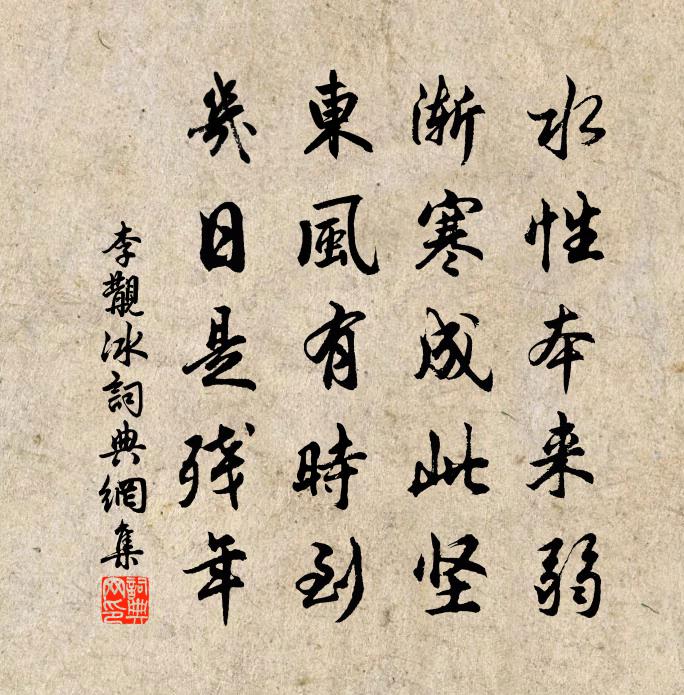 水性本来弱
渐寒成此坚
東風有時到
幾日是残年
李觀冰詞典網集
詞典网印